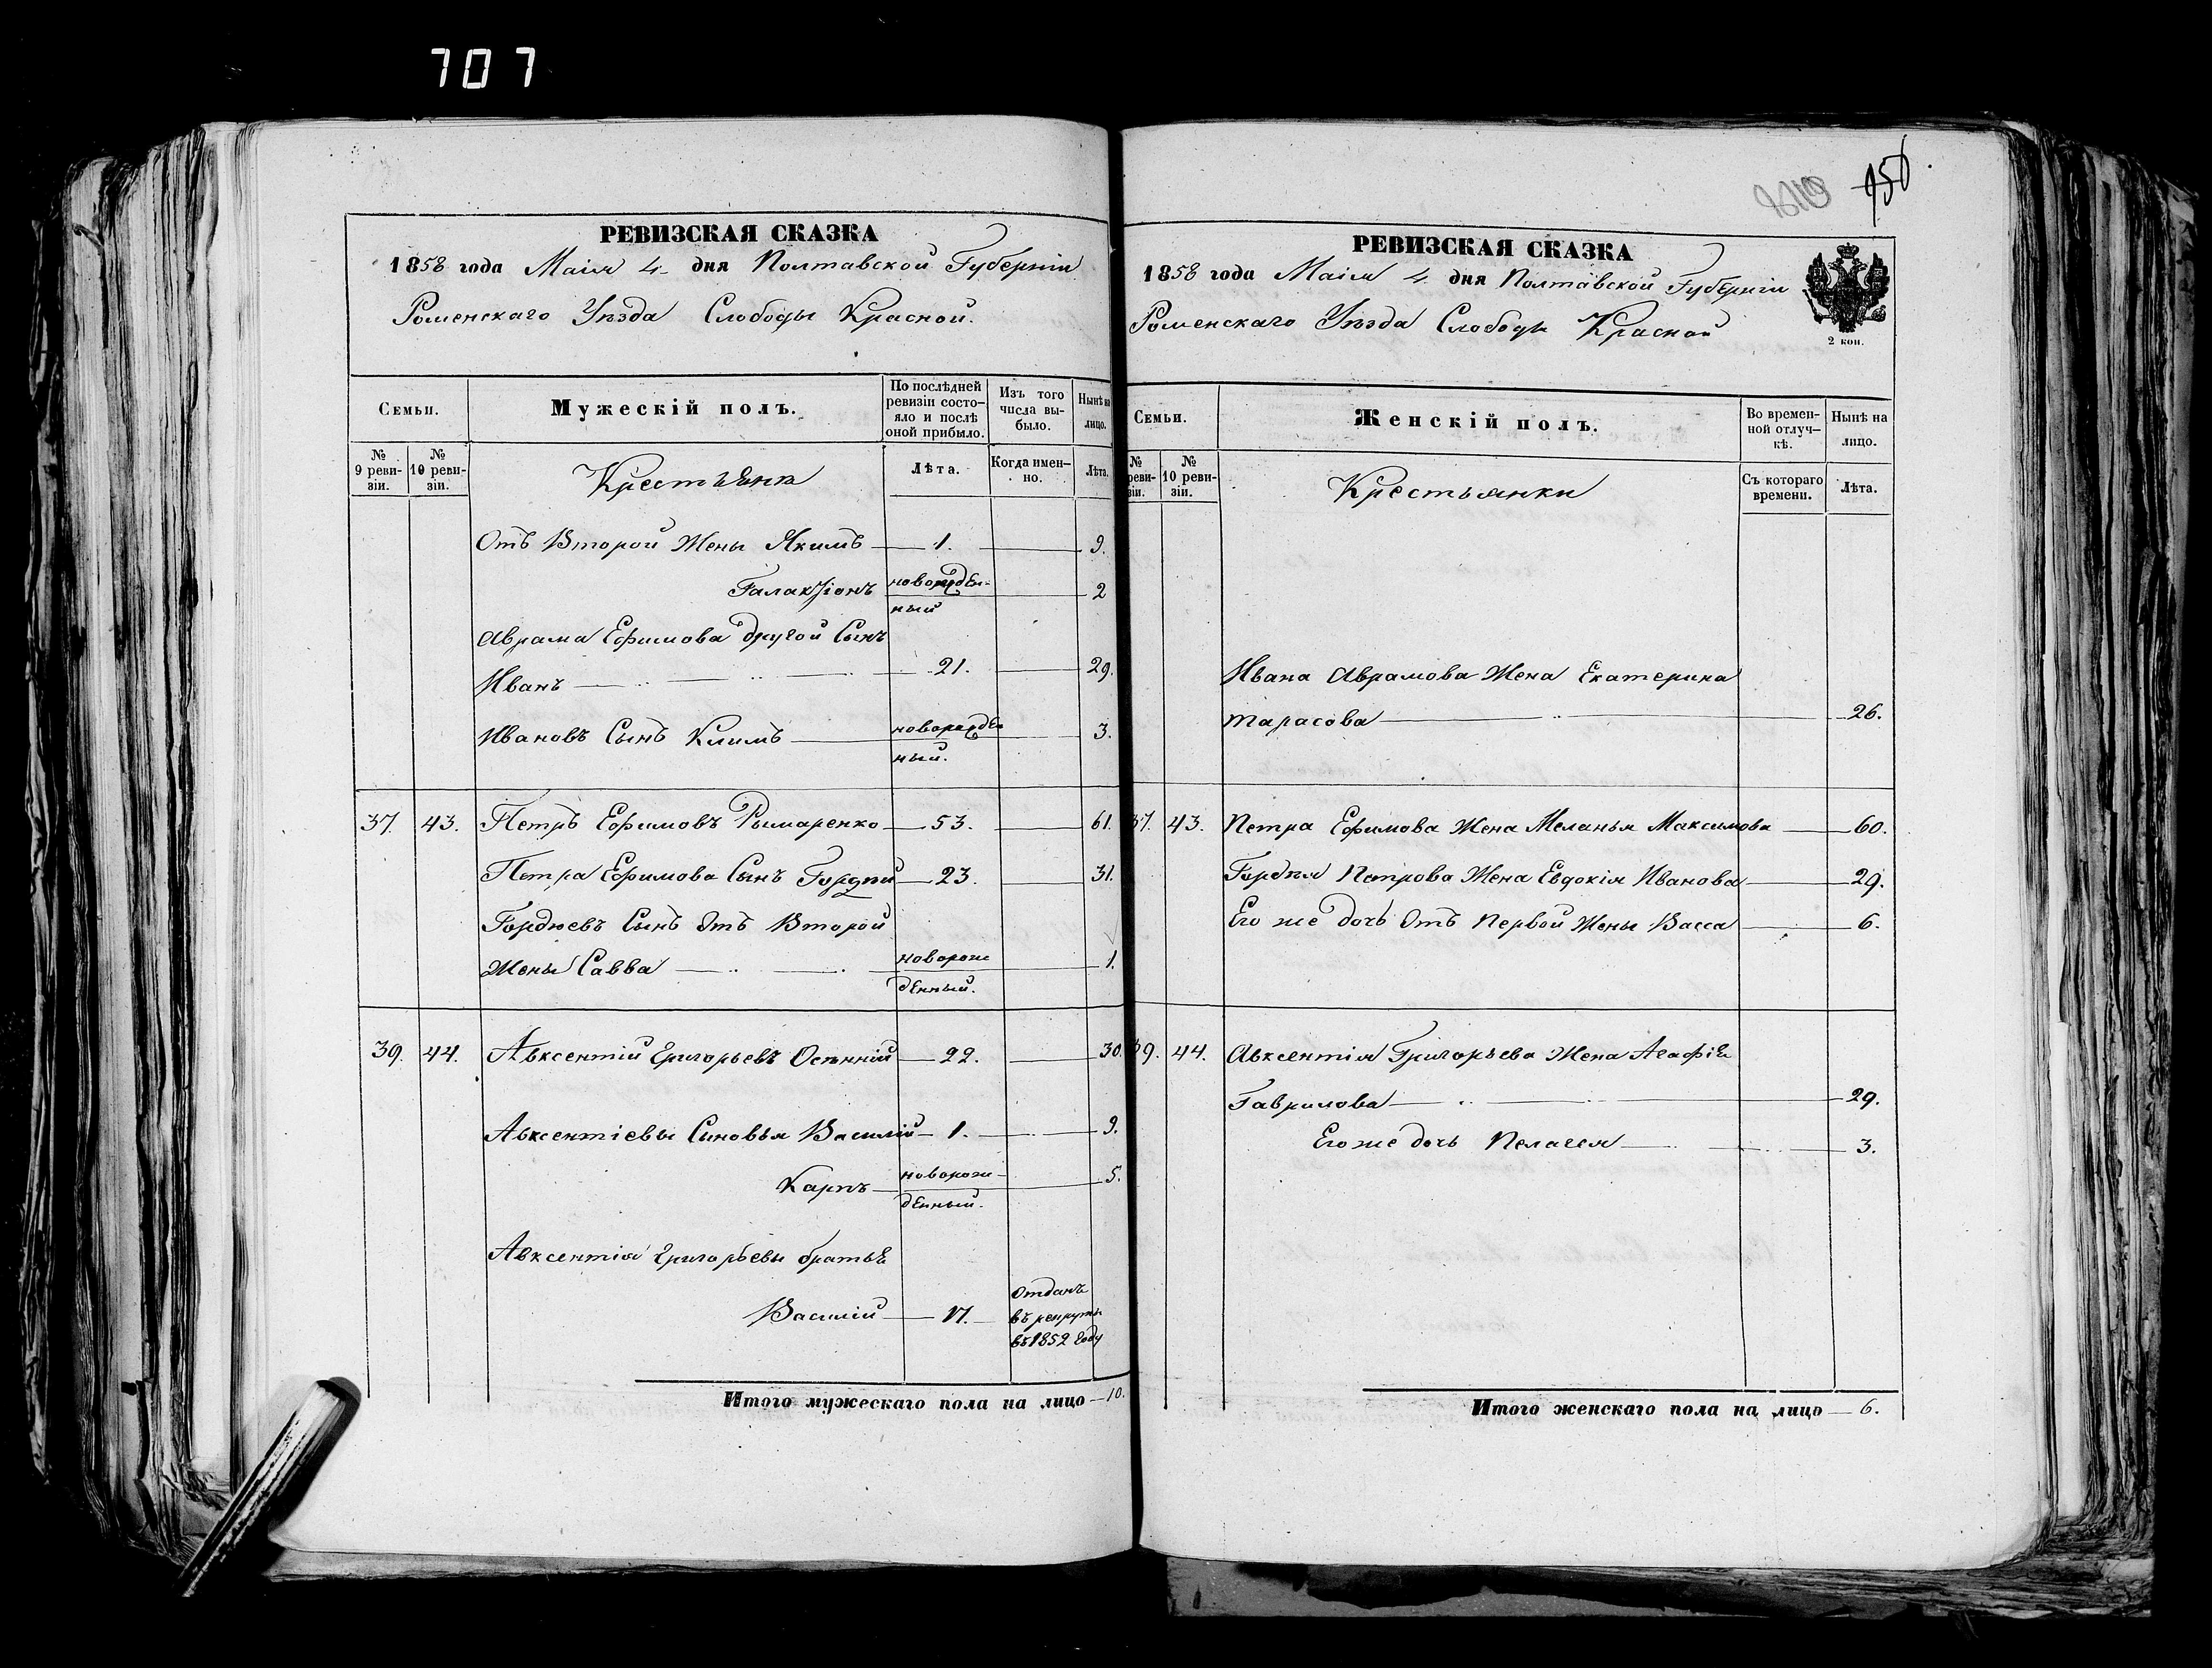 707
950
РЕВИЗСКАЯ СКАЗКА
1858 года Маія 4 дня Полтавской Губерніи
Роменскаго Уѣзда Слободы Красной.
Семьи.
Мужескій полъ.
По послѣдней ревизіи состо-
яло и послѣ оной прибыло.
Изъ того числа вы-
было.
Нынѣ на лицо.
№ 9 реви-
зіи.
№ 10 реви-
зіи.
Крестьяне
Лѣта.
Когда имен-
но.
Лѣта.
Отъ Второй Жены Якимъ 1. 9.
Галактіонъ новорожден-
ный 2
Аврама Ефимова другой Сынъ
Иванъ 21. 29.
Ивановъ Сынъ Климъ новорожде
ный. 3.
37. 43. Петръ Ефимовъ Рымаренко 53. 61.
Петра Ефимова Сынъ Гордѣй 23. 31.
Гордѣевъ Сынъ Отъ Второй
Жены Савва новорож
денный. 1.
39. 44. Авксентій Григорьевъ Осѣнній 22. 30.
Авксентіевы Сыновья Василій 1. 9.
Карпъ новорож-
денный. 5.
Авксентія Григорьевы братья
Василій 17. Отданъ
въ рекруты
въ 1852 году
Итого мужескаго пола на лицо 10.
РЕВИЗСКАЯ СКАЗКА
1858 года Маія 4 дня Полтавской Губерніи
Роменскаго Уѣзда Слободы Красной
2 коп.
Семьи.
Женскій полъ.
Во времен-
ной отлуч-
кѣ.
Нынѣ на лицо.
№ реви-
зіи.
№ 10 реви-
зіи.
Крестьянки
Съ котораго времени.
Лѣта.
Ивана Аврамова Жена Екатерина
Тарасова 26.
37. 43. Петра Ефимова Жена Меланья Максимова 60.
Гордѣя Петрова Жена Евдокія Иванова 29.
Его же дочь Отъ Первой Жены Васса 6.
39. 44. Авксентія Григорьева Жена Агафія
Гаврилова 29.
Его же дочь Пелагея 3.
Итого женскаго пола на лицо 6.